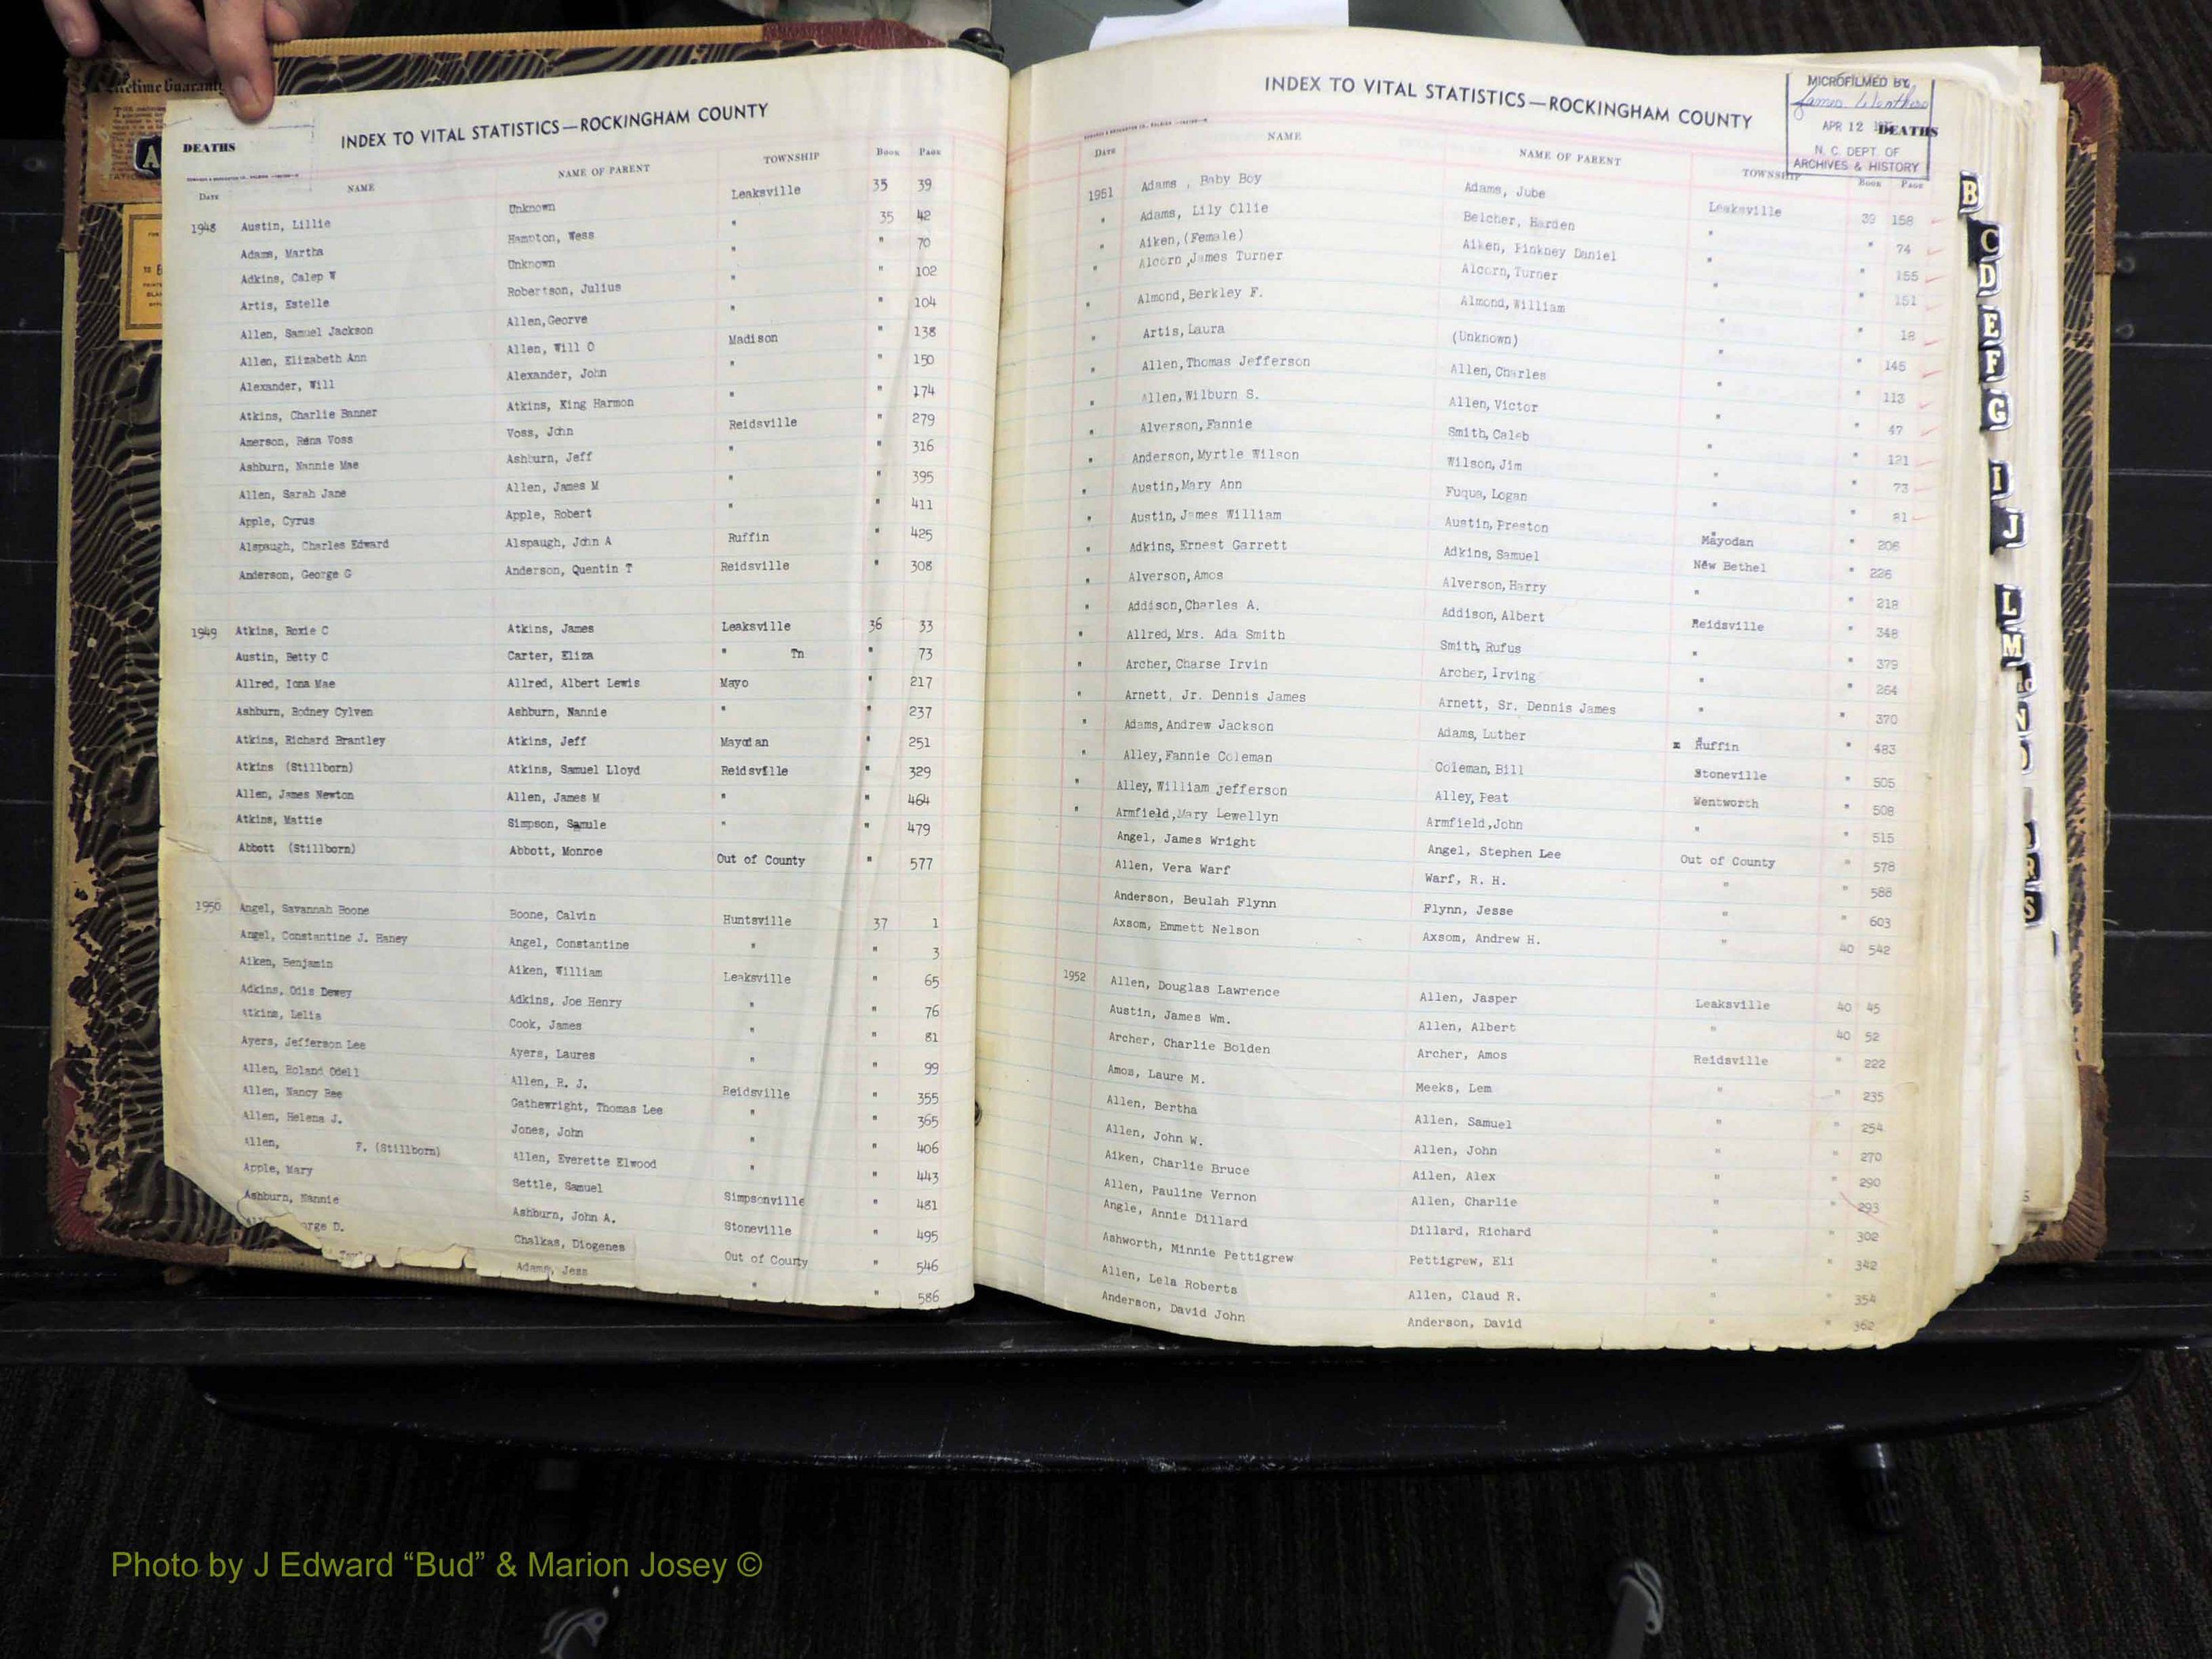 Lifetime Guaranty
A
DEATHS
INDEX TO VITAL STATISTICS—ROCKINGHAM COUNTY
DATE NAME NAME OF PARENT TOWNSHIP BOOK PAGE
1948 Austin, Lillie Unknown Leaksville 35 39
Adams, Martha Hampton, Wess " 35 42
Adkins, Calep W Unknown " " 70
Artis, Estelle Robertson, Julius " " 102
Allen, Samuel Jackson Allen,Georve " " 104
Allen, Elizabeth Ann Allen, Will O Madison " 138
Alexander, Will Alexander, John " " 150
Atkins, Charlie Banner Atkins, King Harmon " " 174
Amerson, Rena Voss Voss, John Reidsville " 279
Ashburn, Nannie Mae Ashburn, Jeff " " 316
Allen, Sarah Jane Allen, James M " " 395
Apple, Cyrus Apple, Robert " " 411
Alspaugh, Charles Edward Alspaugh, John A Ruffin " 425
Anderson, George G Anderson, Quentin T Reidsville " 308
1949 Atkins, Roxie C Atkins, James Leaksville 36 33
Austin, Betty C Carter, Eliza " Tn " 73
Allred, Iona Mae Allred, Albert Lewis Mayo " 217
Ashburn, Rodney Cylven Ashburn, Nannie " " 237
Atkins, Richard Brantley Atkins, Jeff Mayodan " 251
Atkins (Stillborn) Atkins, Samuel Lloyd Reidsville " 329
Allen, James Newton Allen, James M " " 464
Atkins, Mattie Simpson, Samule " " 479
Abbott (Stillborn) Abbott, Monroe Out of County " 577
1950 Angel, Savannah Boone Boone, Calvin Huntsville 37 1
Angel, Constantine J. Haney Angel, Constantine " " 3
Aiken, Benjamin Aiken, William Leaksville " 65
Adkins, Odis Dewey Adkins, Joe Henry " " 76
Atkins, Lelia Cook, James " " 81
Ayers, Jefferson Lee Ayers, Laures " " 99
Allen, Roland Odell Allen, R. J. Reidsville " 355
Allen, Nancy Bee Gathewright, Thomas Lee " " 365
Allen, Helena J. Jones, John " " 406
Allen, F. (Stillborn) Allen, Everette Elwood " " 443
Apple, Mary Settle, Samuel Simpsonville " 481
Ashburn, Nannie Ashburn, John A. Stoneville " 495
orge D. Chalkas, Diogenes Out of County " 546
Adams, Jess " " 586
INDEX TO VITAL STATISTICS—ROCKINGHAM COUNTY
MICROFILMED BY
APR 12 DEATHS
N. C. DEPT. OF
ARCHIVES & HISTORY
DATE NAME NAME OF PARENT TOWNSHIP BOOK PAGE
1951 Adams , Baby Boy Adams, Jube Leaksville 39 158
" Adams, Lily Ollie Belcher, Harden " " 74
" Aiken,(Female) Aiken, Pinkney Daniel " " 155
" Alcorn ,James Turner Alcorn, Turner " " 151
" Almond, Berkley F. Almond, William " " 18
" Artis, Laura (Unknown) " " 145
" Allen,Thomas Jefferson Allen, Charles " " 113
" Allen,Wilburn S. Allen, Victor " " 47
" Alverson, Fannie Smith, Caleb " " 121
" Anderson,Myrtle Wilson Wilson, Jim " " 73
" Austin,Mary Ann Fuqua, Logan " " 81
" Austin, James William Austin, Preston Mayodan " 206
" Adkins, Ernest Garrett Adkins, Samuel New Bethel " 226
" Alverson, Amos Alverson, Harry " " 218
" Addison,Charles A. Addison, Albert Reidsville " 348
" Allred, Mrs. Ada Smith Smith, Rufus " " 379
" Archer, Charse Irvin Archer, Irving " " 264
" Arnett, Jr. Dennis James Arnett, Sr. Dennis James " " 370
" Adams, Andrew Jackson Adams, Luther x Ruffin " 483
" Alley, Fannie Coleman Coleman, Bill Stoneville " 505
" Alley, William Jefferson Alley, Peat Wentworth " 508
" Armfield,Mary Lewellyn Armfield,John " " 515
Angel, James Wright Angel, Stephen Lee Out of County " 578
Allen, Vera Warf Warf, R. H. " " 588
Anderson, Beulah Flynn Flynn, Jesse " " 603
Axsom, Emmett Nelson Axsom, Andrew H. " 40 542
1952 Allen, Douglas Lawrence Allen, Jasper Leaksville 40 45
Austin, James Wm. Allen, Albert " 40 52
Archer, Charlie Bolden Archer, Amos Reidsville " 222
Amos, Laure M. Meeks, Lem " " 235
Allen, Bertha Allen, Samuel " " 254
Allen, John W. Allen, John " " 270
Aiken, Charlie Bruce Ailen, Alex " " 290
Allen, Pauline Vernon Allen, Charlie " " 293
Angle, Annie Dillard Dillard, Richard " " 302
Ashworth, Minnie Pettigrew Pettigrew, Eli " " 342
Allen, Lela Roberts Allen, Claud R. " " 354
Anderson, David John Anderson, David " " 362
B
C
D
E
F
G
I
J
L
M
N
O
R
S
Photo by J Edward “Bud” & Marion Josey ©